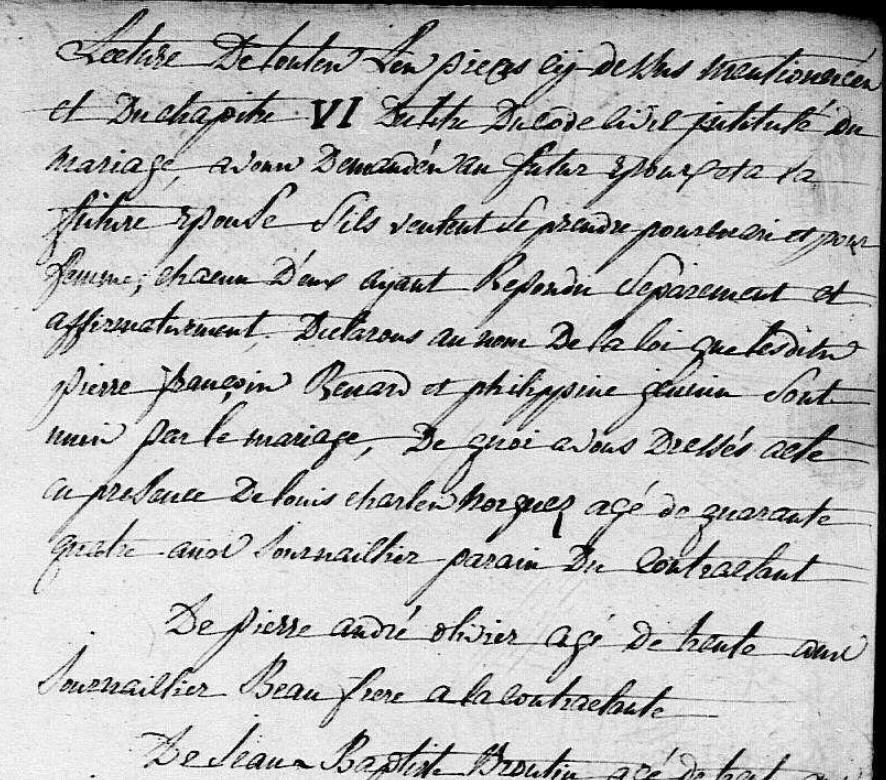 Lecture De touten Les pieces cy dessus mentionnéen
et Du chapitre VI Du titre Du code civil intitulé Du
mariage, avonn Demandén au futur Epoux et a La
future Epouse s'ils veulent se prendre pour mari et pour
femme, chacun D'eux ayant Repondu Separement et
affirmativement, Declarons au nom De la loi que lesditn
pierre françoin Renard et philippine sont
unin par le mariage, De quoi avons Dressés acte
en presence De louis charlen agé de quarante
quatre ans Journaillier parain Du Contractant
De pierre andré olivier agé De trente ans
Journaillier Beau frere a la contractante
De Jean Baptiste agé de